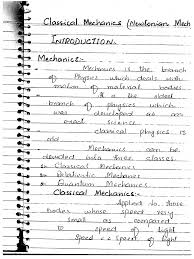 Classical Mechanics (Newtonian Mech
INTRODUCTION.
Mechanics:-
Mechanics is the branch
of Physics which deals with
motion of material bodies
It is the oldest
branch of physics which
was developed as an
exact science.
classical physics is
old
Mechanics can be
devided into three classes.
Classical Mechanics
Relativistic Mechanics
Quantum Mechanics
Classical Mechanics:-
Applied to those
bodies whose speed very
small as compared
to speed of light
Speed << speed of light